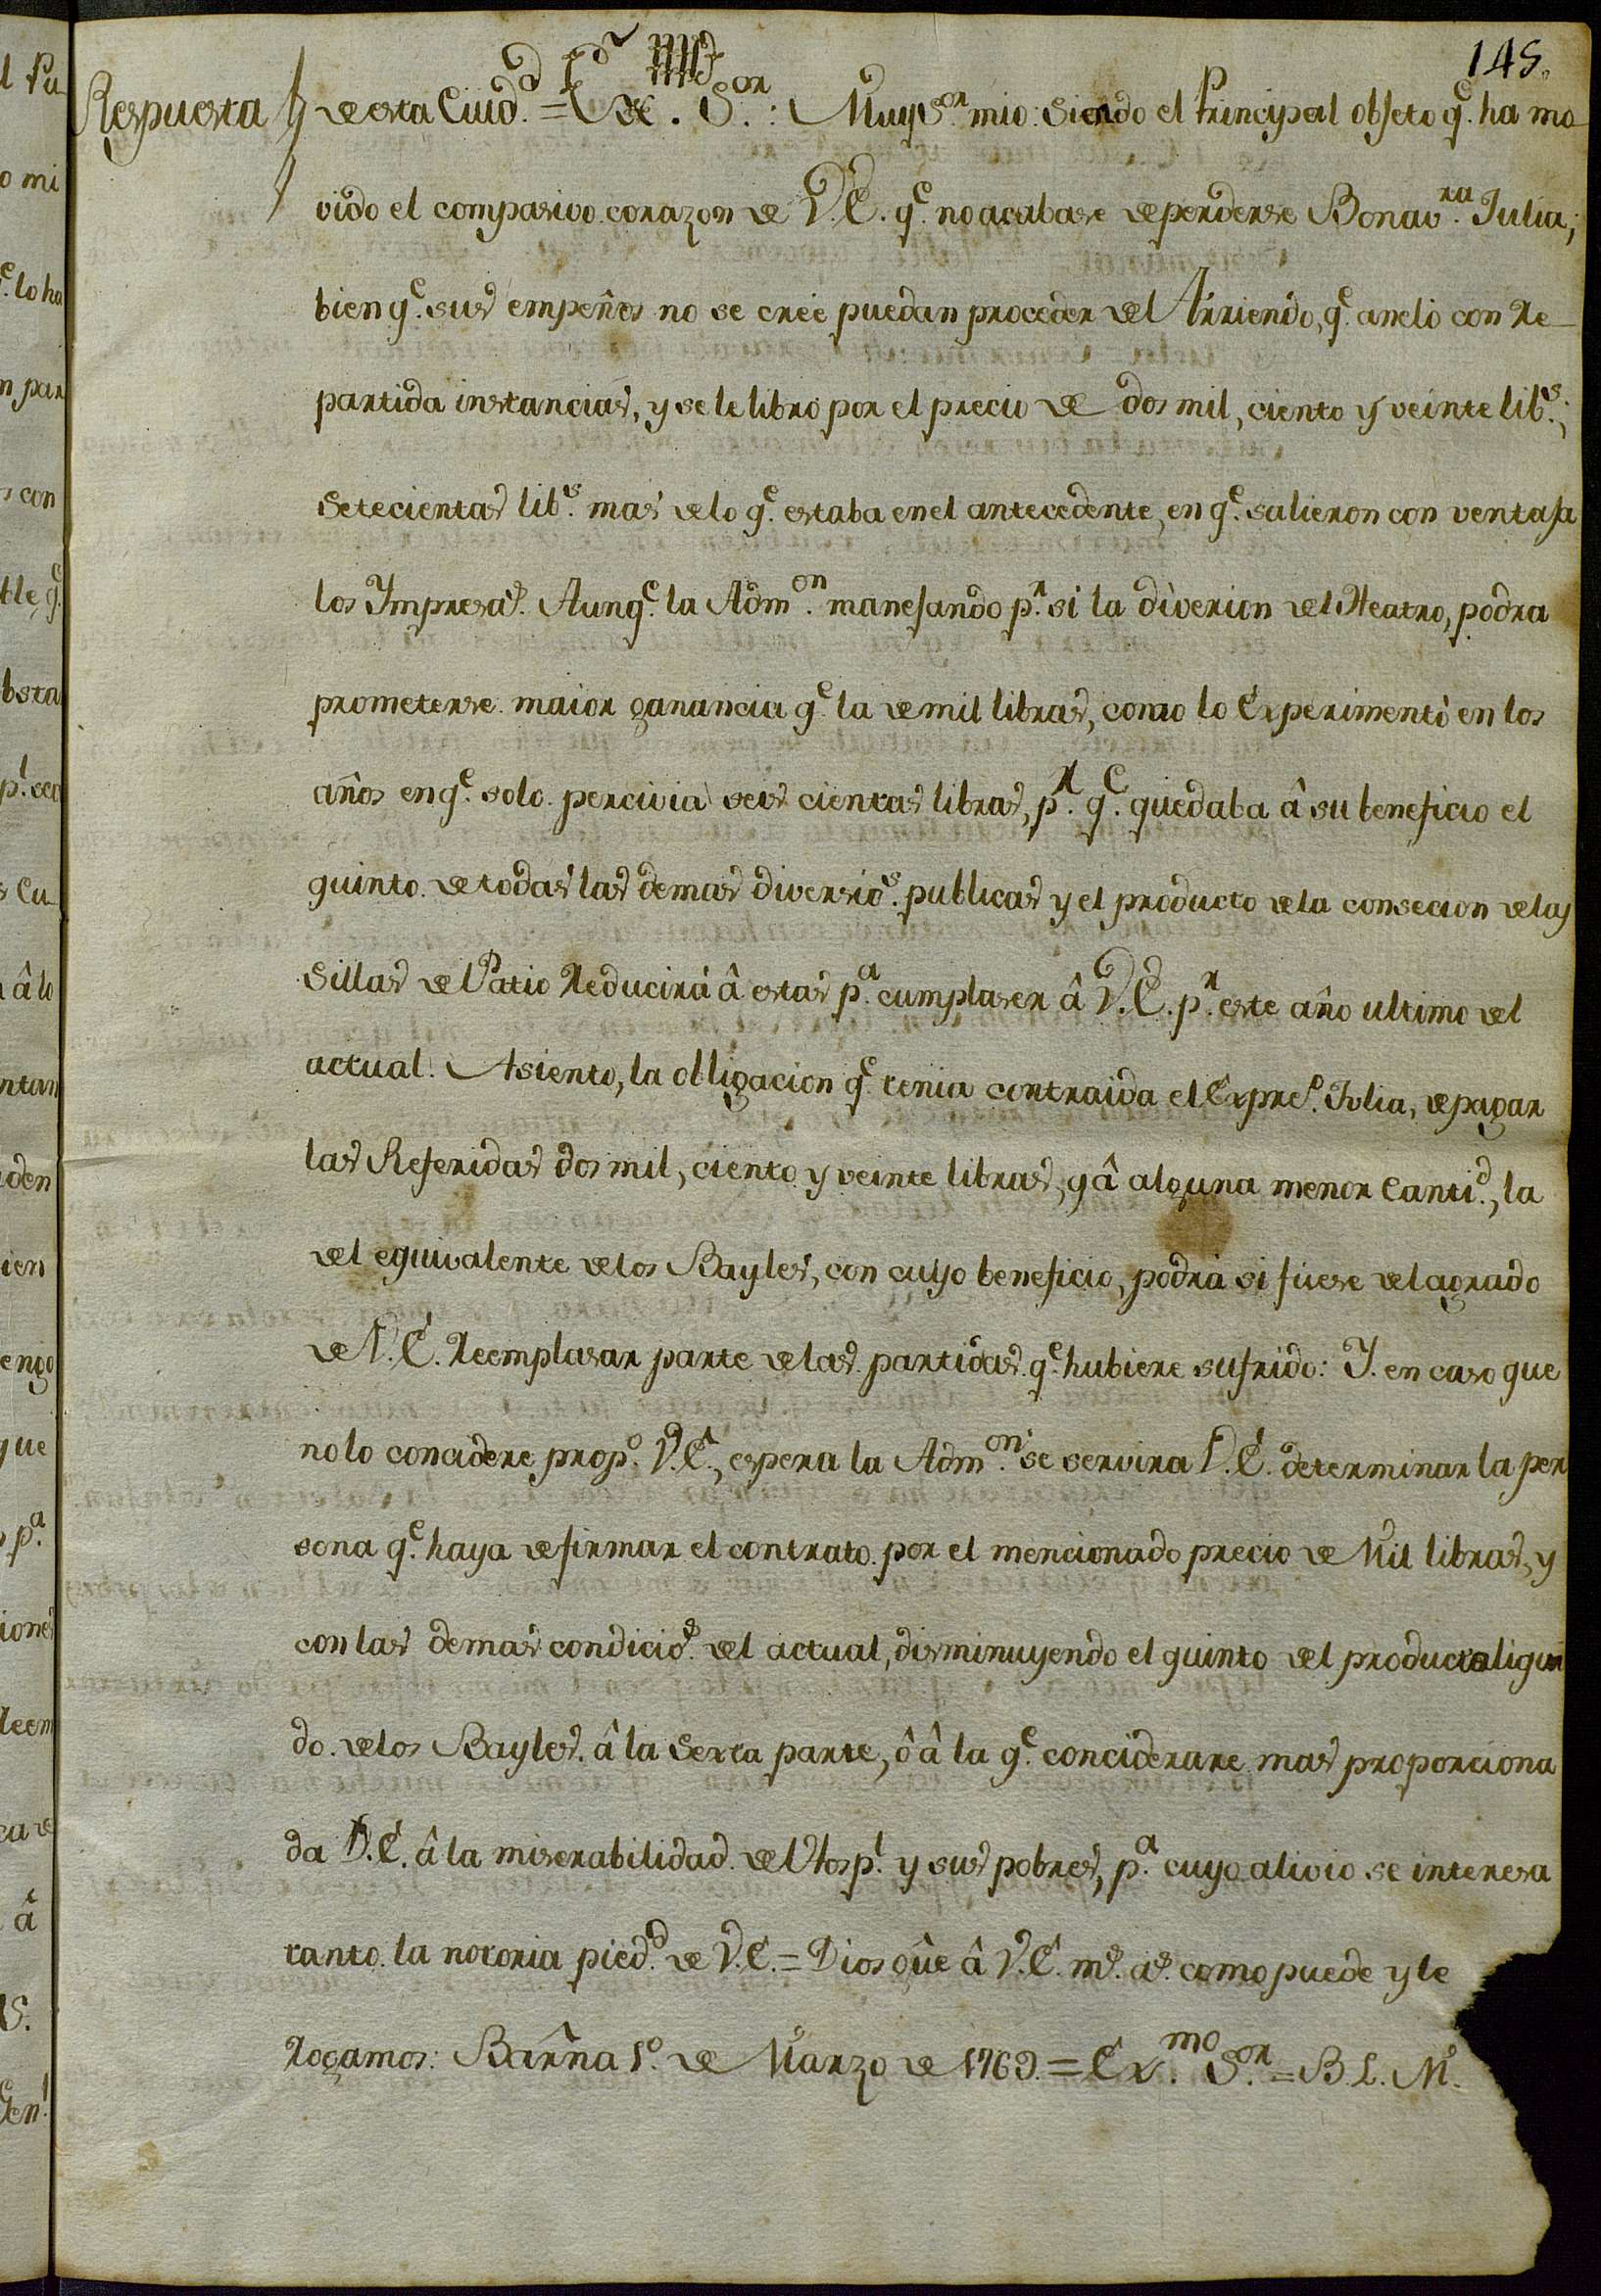 145.
Respuesta de esta Ciud.d = Ex.mo S.or : Muy S.or mio: Siendo el Principal objeto q.e ha mo-
vido el compasivo corazon de V.E. q.e no acabase de perderse Bonav.ra Julia;
bien q.e sus empeños no se creé puedan proceder del Arriendo, q.e aneló con Re-
partida instancias, y se le libró por el precio de dos mil, ciento y veinte lib.s;
Setecientas lib.s mas de lo q.e estaba en el antecedente, en q.e salieron con ventaja
los Impresa.s. Aunq.e la Adm.on manejando p.r si la diverion del Theatro, podra
prometerse maior ganancia q.e la de mil libras, como lo Experimentó en los
años en q.e solo percivia seis cientas libras, p.r q.e quedaba â su beneficio el
quinto de todas las demas diversio.s publicas y el producto de la consecion de las
Sillas del Patio Reducirá â estas p.a cumplaser â V.E. p.r este año ultimo del
actual Asiento, la obligacion q.e tenia contraida el Expres.o Julia, de pagar
las Referidas dos mil, ciento y veinte libras, y â alguna menor Canti.d, la
del equivalente de los Bayles, con cuyo beneficio, podrá si fuese del agrado
de V.E. Reemplasar parte de las partidas q.e hubiere sufrido: Y en caso que
no lo concidere prop.o V.E., espera la Adm.on se servira V.E. determinar la per
sona q.e haya de firmar el contrato por el mencionado precio de Mil libras, y
con las demas condicio.s del actual, disminuyendo el quinto del producto liqui
do de los Bayles â la Sexta parte, ô â la q.e conciderare mas proporciona
da V.E. â la miserabilidad del Hosp.l y sus pobres, p.a cuyo alivio se interesa
tanto la notoria pied.d de V.E. = Dios gûe â V.E. m.s a.s como puede y le
Rogamos: Barñna 1.o de Marzo de 1769. = Ex.mo S.or = B. L. M.